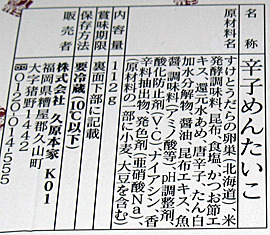 名称 辛子めんたいこ
原材料名
すけとうだらの卵巣(北海道)、米
発酵調味料、昆布、食塩、かつお節エ
キス、還元水あめ、唐辛子、たん白
加水分解物、醤油、昆布エキス、魚
醤、調味料(アミノ酸等)、pH調整剤、
酸化防止剤(V・C)、ナイアシン、香
辛料抽出物、発色剤(亜硝酸Na)、
(原材料の一部に小麦、大豆を含む)
112g
賞味期限 裏面下部に記載
保存方法 要冷蔵(10℃以下)
販売者 株式会社 久原本家 K01
福岡県糟屋郡久山町
大字猪野1442
0120-014-555